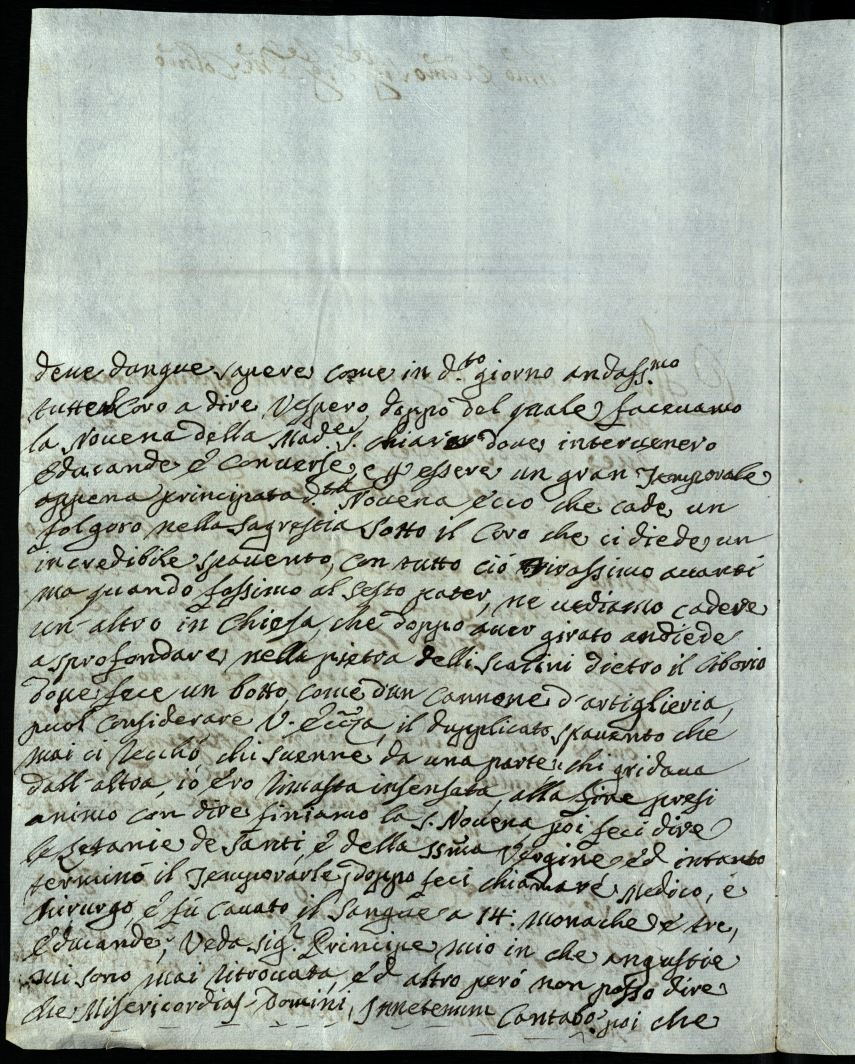 deue dunque sapere come in d.to giorno andass.mo
tutte Coro a dire Vespero doppo del quale faceuamo
la Nouena della Mad.e S. Chiara doue interuenero
Educande è Conuerse, e p essere un gran Temporale
appena principiata d.ta Nouena ecco che cade un
folgoro nella Sagrestia sotto il Coro che ci diede un
incredibile spauento, con tutto ciò tirassimo auanti
ma quando fossimo al Sesto pater, ne uediamo cadere
un altro in Chiesa, che doppo auer girato andiede
a sprofondare nella pietra delli scalini dietro il Ciborio
doue fece un botto, come d'un Cannone d'artiglieria,
puol Considerare V. Ecc.za, il dupplicato spauento che
mai ci recchò, chi suenne da una parte, chi gridaua
dall'altra, io ero rimasta insensata, alla fine presi
animo con dire finiamo la S. Nouena poi feci dire
le Letanie de Santi, è della SS.ma Vergine èd intanto
terminò il Temporarle, doppo feci chiamare Medico, è
Chirurgo, è fù cauato il Sangue a 14: Monache è tre,
Educande; Veda Sig.r Principe mio in che angustie
mi sono mai ritrouata, èd altro però non posso dire
che Misericordias Domini, Innetenum Cantabo: poi che